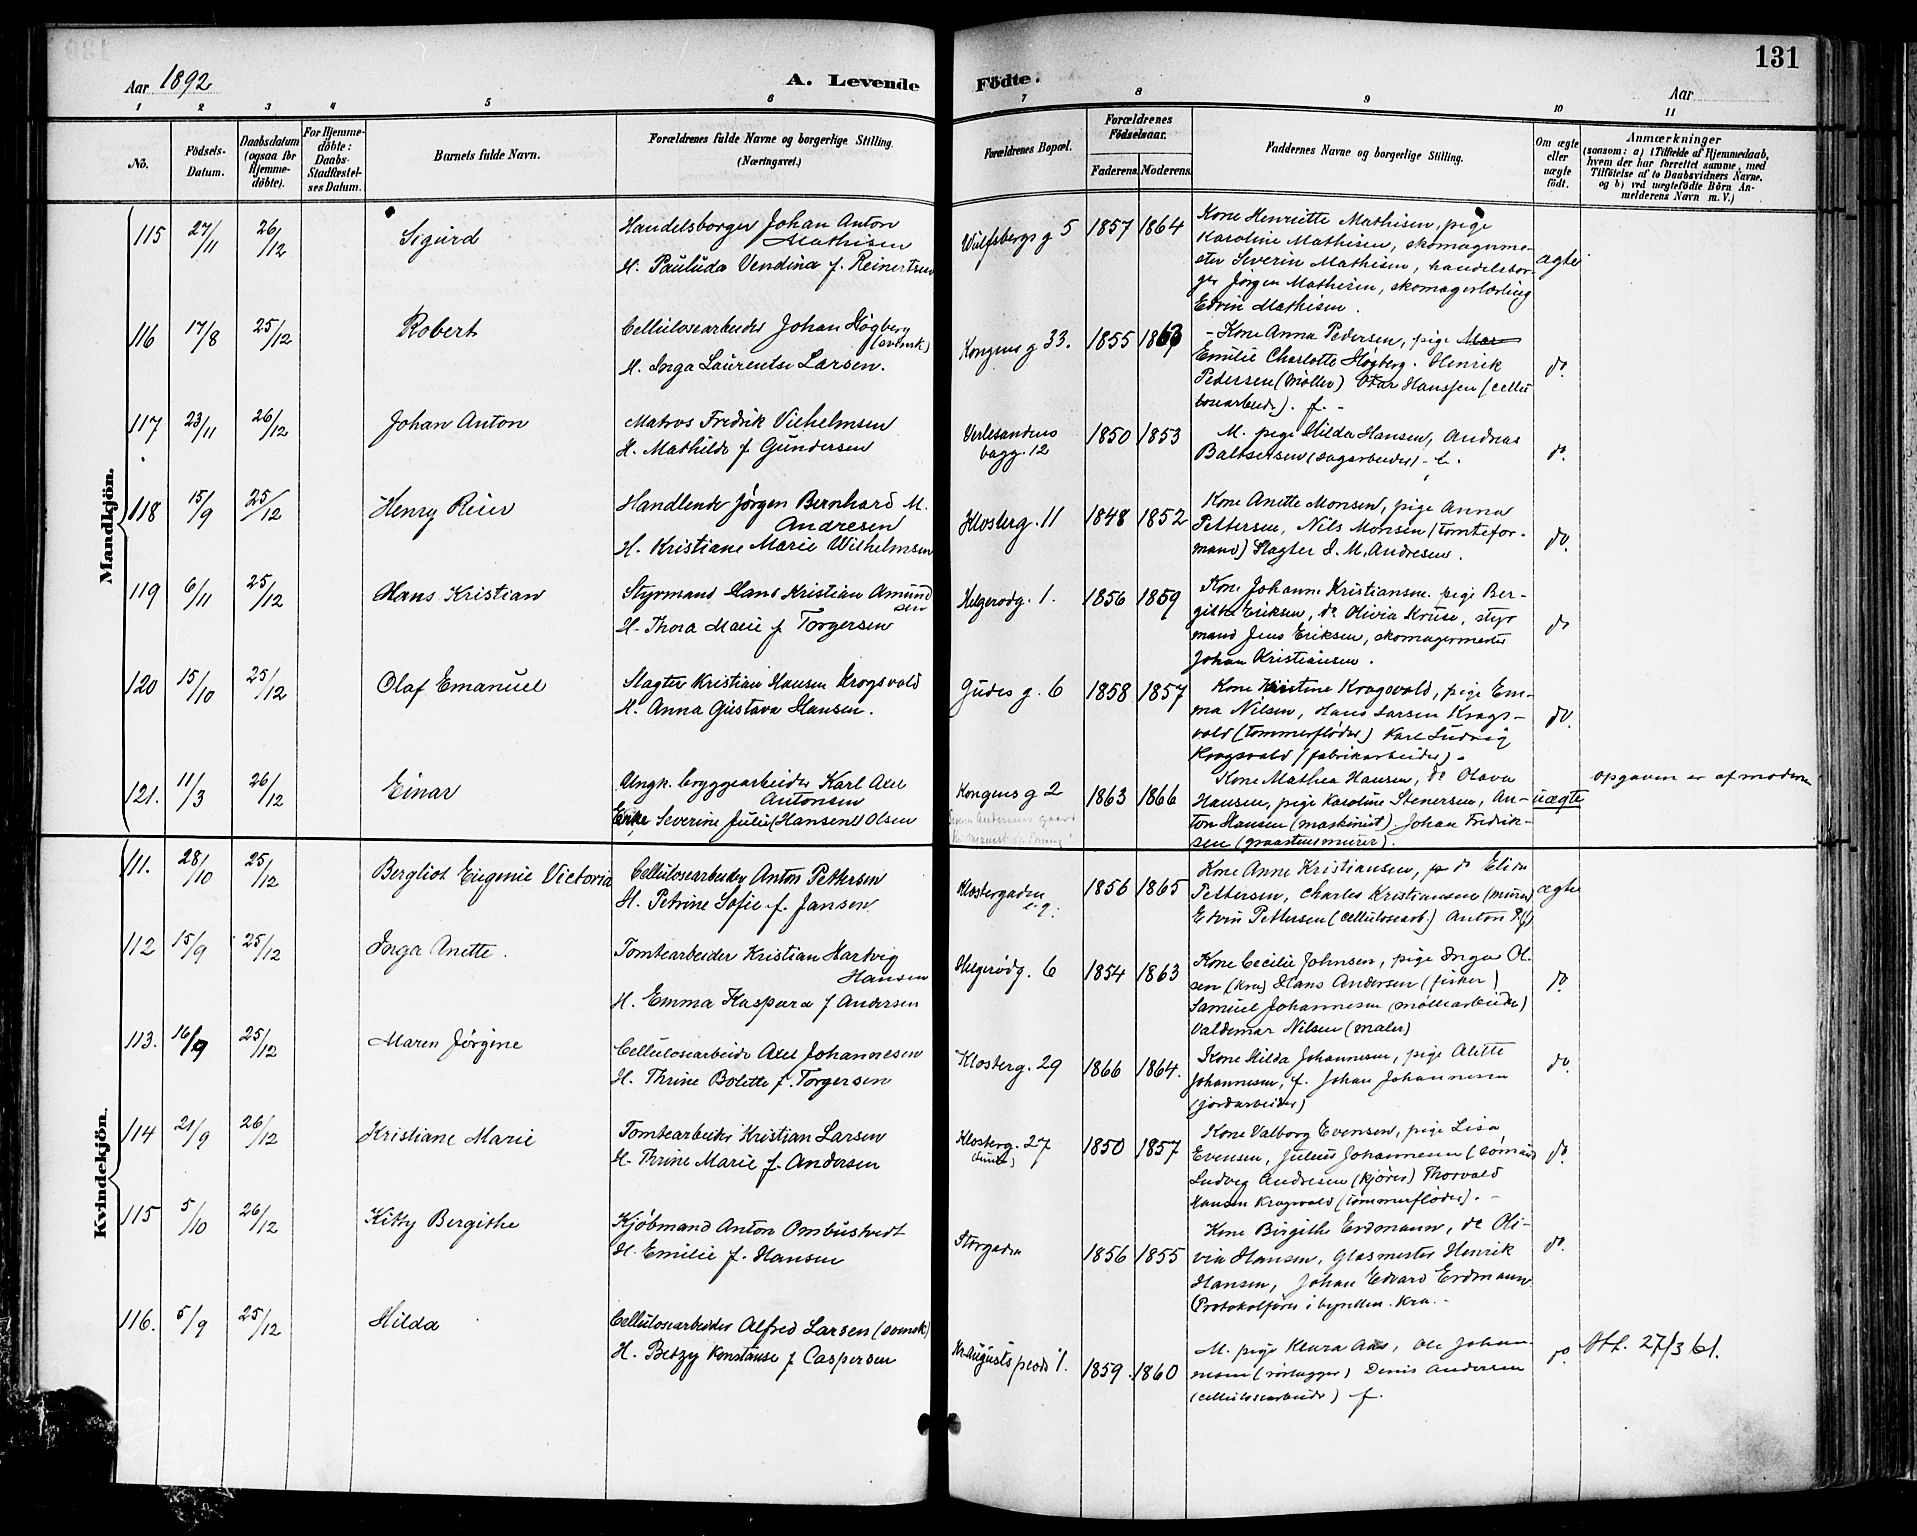 131
Aar 1892
A. Levende
Födte.
Aar
1 2 3 4 5 6 7 8 9 10 11
Nö.
Födsels-
Datum.
Daabsdatum
(ogsaa for
Hjemme-
döbte).
For Hjemme-
döbte:
Daabs-
Stadfæstel-
ses Datum.
Barnets fulde Navn.
Forældrenes fulde Navne og borgerlige Stilling.
(Næringsvei.)
Forældrenes Bopæl.
Forældrenes
Födselsaar.
Faderens. Moderens.
Faddernes Navne og borgerlige Stilling.
Om ægte
eller
uægte
födt.
Anmærkninger
(saasom: a) i Tilfælde af Hjemmedaab,
hvem der har forrettet samme, med
Tilföielse af to Daabsvidners Navne,
og b) ved uægtefödte Börn An-
melderens Navn m. V.)
Mandkjön.
115 27/11 26/12 Sigurd
Handelsborger Johan Anton
Mathisen
H. Pauluda Vendina f. Reinertsen
Wulfsbergs g 5 1857 1864
Kone Henriette Mathisen, pige
Karoline Mathisen, skomagerme-
ster Severin Mathisen, handelsbor-
ger Jörgen Mathisen, skomagerlærling
Edvin Mathisen.
ægte
116 17/8 25/12 Robert
Cellulosearbeider Johan Høgberg
(svensk)
H. Inga Laurentse Larsen.
Kongens g 33. 1855 1863
- Kone Anna Pedersen, pige Mar
Emilie Charlotte Høgberg. Henrik
Pedersen (møller) Hanssen (cellu
losearbeider). f. -
do.
117 23/11 26/12 Johan Anton
Matros Fredrik Vilhelmsen
H. Mathilde f Gundersen
Verlesandens
bagg. 12 1850 1853
M. pige Hilda Hansen, Andreas
Baltsersen (sagarbeider) -
do.
118 15/9 25/12 Henry Reier
Handlende Jörgen Bernhard M.
Andresen
H. Kristiane Marie Wilhelmsen
Klosterg. 11 1848 1852
Kone Anette Monsen, pige Anna
Pettersen, Nils Monsen (tomtefor-
mand) Slagter J. M. Andresen.
do.
119 6/11 25/12 Hans Kristian
Styrmand Hans Kristian Amund
sen
H. Thora Marie f Torgersen
Helgerødg. 1. 1856 1859
Kone Johanne Kristiansen. pige Ber-
gitte Eriksen, do Olivia Kruse, styr
mand Jens Eriksen, skomagermester
Johan Kristiansen.
do
120 15/10 25/12 Olaf Emanuel
Slagter Kristian Hansen Krogsvold
H. Anna Gustava Hansen.
Gudes g. 6 1858 1857
Kone Kristine Kragsvold, pige Em-
ma Nilsen, Hans Larsen Krags-
vold (tømmerfløder) Karl Ludvig
Kragsvold (fabrikarbeider).
do.
121. 11/3 26/12 Einar
Ungk. bryggearbeider Karl Axel
Antonsen
Enke Severine Julie (Hansen) Olsen
Kongens g 2 1863 1866
Kone Mathea Hansen, do Olava
Hansen, pige Karoline Stenersen, An-
ton Hansen (maskinist). Johan Fredrik-
sen (graastensmurer).
uægte
opgaven er af moderen
Kvindekjön.
111. 28/10 25/12 Bergliot Eugenie Victoria
Cellulosearbeider Anton Pettersen
H. Petrine Sofie f. Jansen
Klostergaden
1856 1865
Kone Anne Kristiansen, p do Elida
Pettersen, Charles Kristiansen (murer)
Edvin Pettersen (cellulosearb.) Anton P. (f)
ægte
112 15/9 25/12 Inga Anette.
Tomtearbeider Kristian Hartvig
Hansen
H. Emma Kaspara f Andersen
Helgerødg. 6 1854 1863
Kone Cecilie Johnsen, pige Inga Ol-
sen (Kra) Hans Andersen (fisker)
Samuel Johannesen (møllearbeider)
Valdemar Nilsen (maler)
do.
113. 16/9 25/12 Maren Jørgine
Cellulosearbeider Axel Johannesen
H. Thrine Bolette f. Torgersen
Klosterg. 29 1866 1864.
Kone Hilda Johannesen, pige Alette
Johannesen, f. Johan Johannesen
(jordarbeider)
do.
114 21/9 26/12 Kristiane Marie
Tomtearbeider Kristian Larsen
H. Thrine Marie f. Andersen
Klosterg. 27
1850 1857
Kone Valborg Evensen, pige Lisa
Evensen, Julius Johannesen (sømand
Ludvig Andresen (kjører) Thorvald
Hansen Kragsvold (tømmerfløder). -
do.
115 5/10 26/12 Kitty Bergithe
Kjøbmand Anton Ombustvedt
H. Emilie f. Hansen
Storgaden 1856 1855
Kone Birgithe Erdmann, do Oli-
via Hansen, Glasmester Henrik
Hansen, Johan Edvard Erdmann
Protokolfører i byretten. Kra. -
do.
116. 5/9 25/12 Hilda
Cellulosearbeider Alfred Larsen (svensk)
H. Betzy Konstanse f Caspersen
Kr. Augusts plads 1. 1859. 1860
M. pige Klara Aas, Ole Johan-
nesen (rørlægger) Denis Andersen
(cellulosearbeider) f.
do.
Att. 27/3 61.